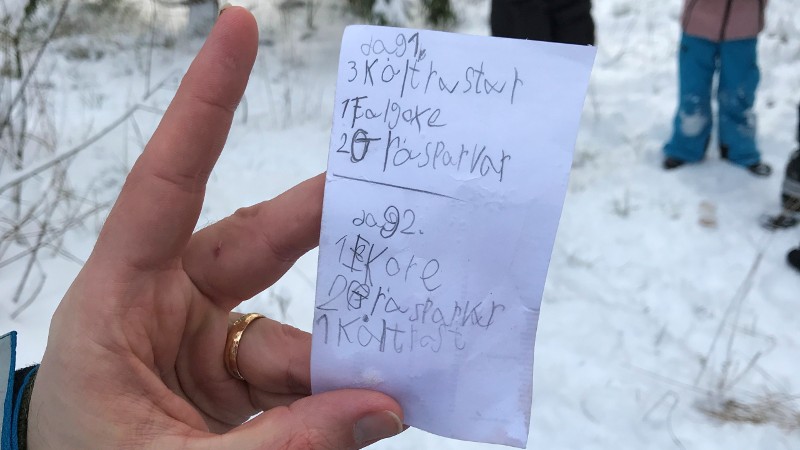 dag1.
3 Kåltrastar
1 Falgoke
2 Gråsparvar
dag2.
1 Kore
2 Gråsparvar
1 Kåltrast